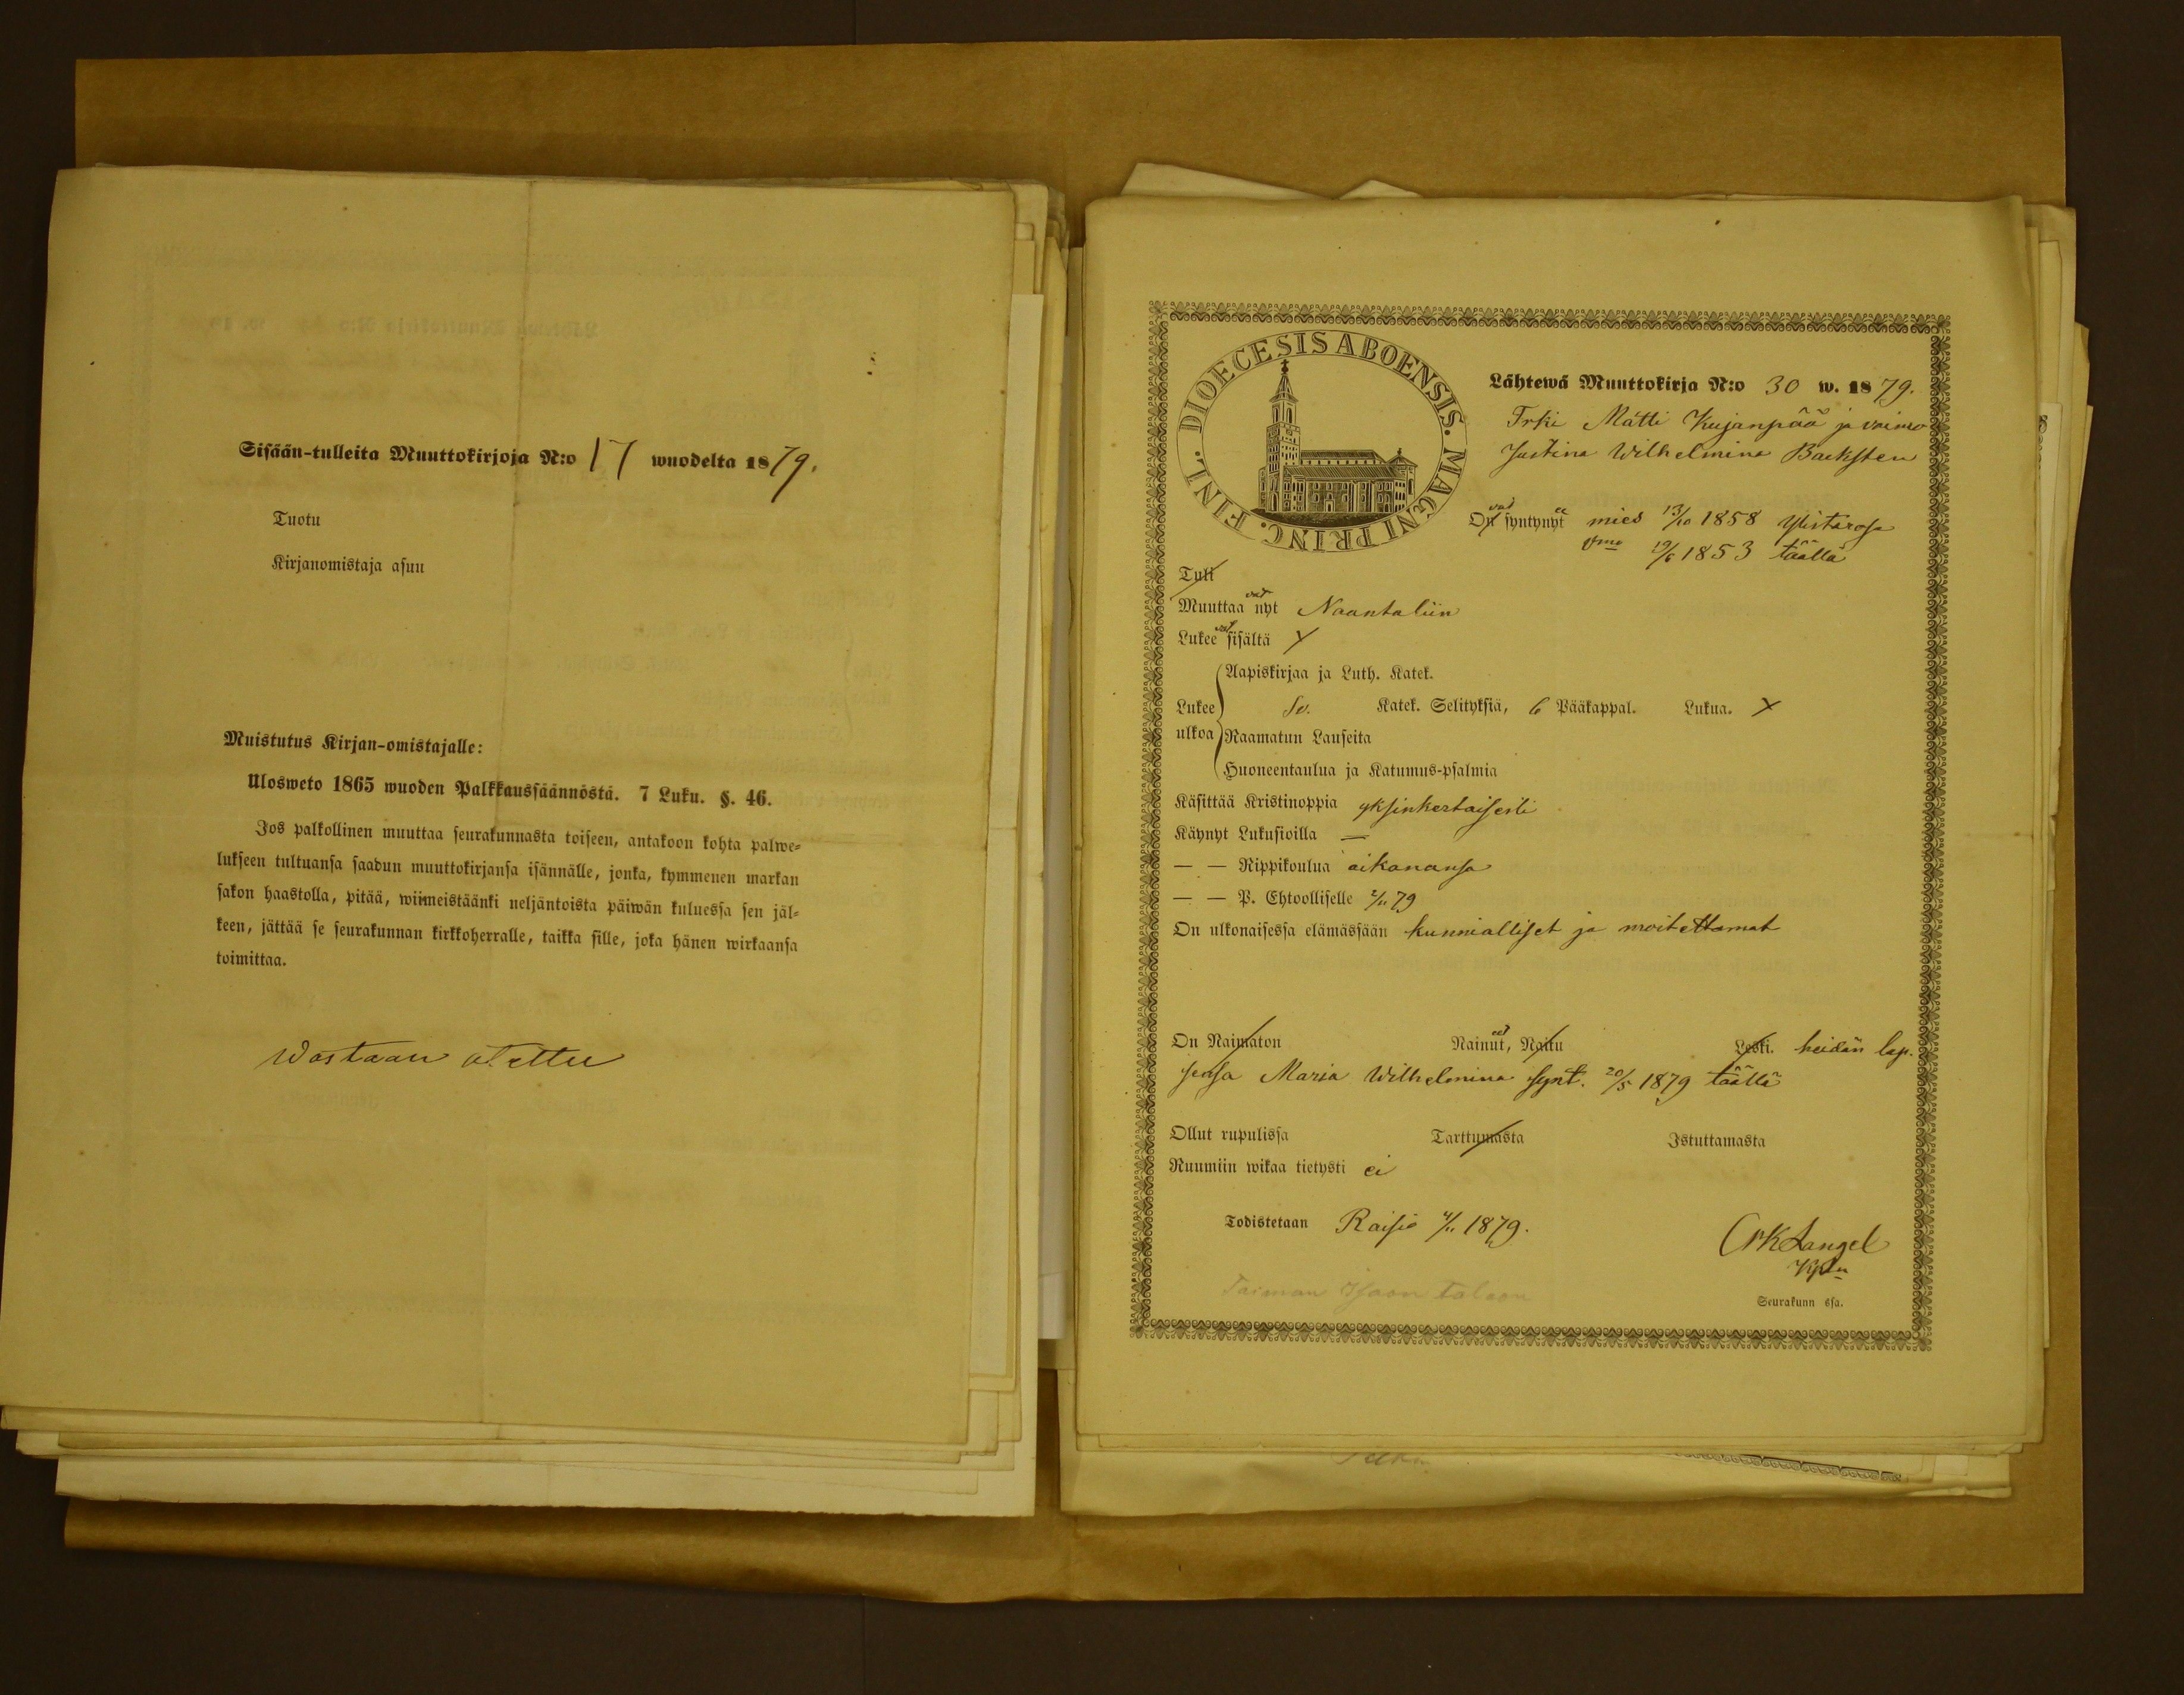 Sisään-tulleita Muuttokirjoja N:o 17 wuodelta 1879.
Tuotu
Kirjanomistaja asuu
Muistutus Kirjan-omistajalle:
Ulosweto 1865 wuoden Palkkaussäännöstä. 7 Luku. §. 46.
Jos palkollinen muuttaa seurakunnasta toiseen, antakoon kohta palwe-
lukseen tultuansa saadun muuttokirjansa isännälle, jonka, kymmenen markan
sakon haastolla, pitää, wiimeistäänki neljäntoista päiwän kuluessa sen jäl-
keen, jättää se seurakunnan kirkkoherralle, taikka sille, joka hänen wirkaansa
toimittaa.
Wastaan otettu
DIOECESIS ABOENSIS. MAGNI PRINC. FINL.
Lähtewä Muuttokirja N:o 30 w. 1879.
Trki Matti Kujanpää ja vaimo
Justina Wilhelmina Backsten
On vat syntynyt eet mies 13/10 1858 Ylistarosa
vmo 19/6 1853 täällä
Tuli
Muuttaa vat nyt Naantaliin
Lukee vat sisältä X
Aapiskirjaa ja Luth. Katek.
Lukee Sv. Katek. Selityksiä, 6 Pääkappal. Lukua. X
ulkoa Raamatun Lauseita
Huoneentaulua ja Katumus-psalmia
Käsittää Kristinoppia yksinkertaisesti
Käynyt Lukusioilla —
— — Rippikoulua aikanansa
— — P. Ehtoolliselle 2/11 79
On ulkonaisessa elämässään kunnialliset ja moitettamat
On Naimaton Nainut, eet Naitu Leski. heidän lap.
sensa Maria Wilhelmina synt. 20/5 1879 täällä
Ollut rupulissa Tarttumasta Istuttamasta
Ruumiin wikaa tietysti ei
Todistetaan Raisio 4/11 1879.
Langel
Seurakunn ssa.